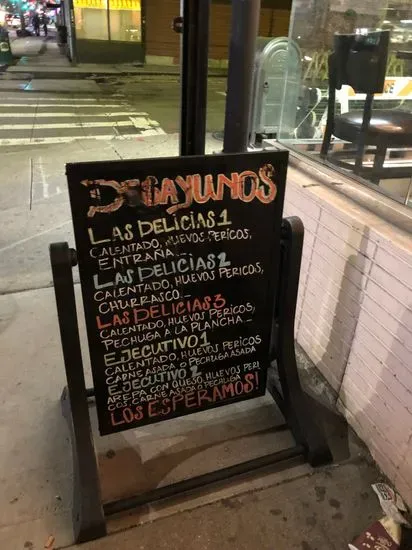 DESAYUNOS
LAS DELICIAS 1
CALENTADO, HUEVOS PERICOS,
ENTRAÑA...
LAS DELICIAS 2
CALENTADO, HUEVOS PERICOS,
CHURRASCO...
LAS DELICIAS 3
CALENTADO, HUEVOS PERICOS,
PECHUGA A LA PLANCHA...
EJECUTIVO 1
CALENTADO, HUEVOS PERICOS
CARNE ASADA O PECHUGA ASADA
EJECUTIVO 2
AREPA CON QUESO, HUEVOS PERI
COS, CARNE ASADA O PECHUGA
LOS ESPERAMOS!